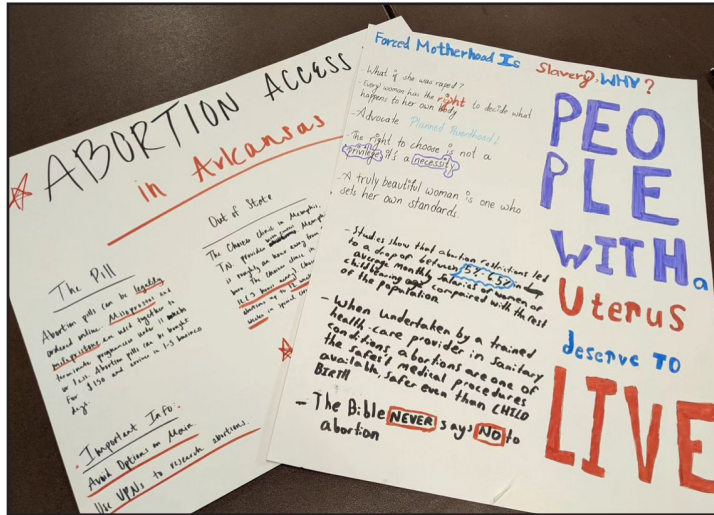 ABORTION ACCESS
in Arkansas
The Pill
Abortion pills can be legally
ordered online. Misoprostol and
mifepristone are used together to
terminate pregnancies under 11 weeks
or less. Abortion pills can be bought
for $150 and arrive in 1-3 business
days.
Important Info:
Avoid Options on Main.
Use VPNs to research abortions.
Out of State
The Choices clinic in Memphis,
TN provider
is roughly an hour away from
here. The Choices clinic in
hours away) Choices
abortions up to
weeks in special
Forced Motherhood Is Slavery, WHY?
- What if she was raped?
- Every woman has the right to decide what
happens to her own body
- Advocate Planned Parenthood!
- The right to choose is not a
privilege it's a necessity
- A truly beautiful woman is one who
sets her own standards.
- Studies show that abortion restrictions led
to a drop of between 5%-6.5% in
average monthly salaries of women of
childbearing age compared with the rest
of the population.
- When undertaken by a trained
health-care provider in sanitary
conditions, abortions are one of
the safest medical procedures
available, safer even than CHILD
BIRTH
- The Bible NEVER says NO to
abortion
PEO
PLE
WITH a
Uterus
deserve TO
LIVE